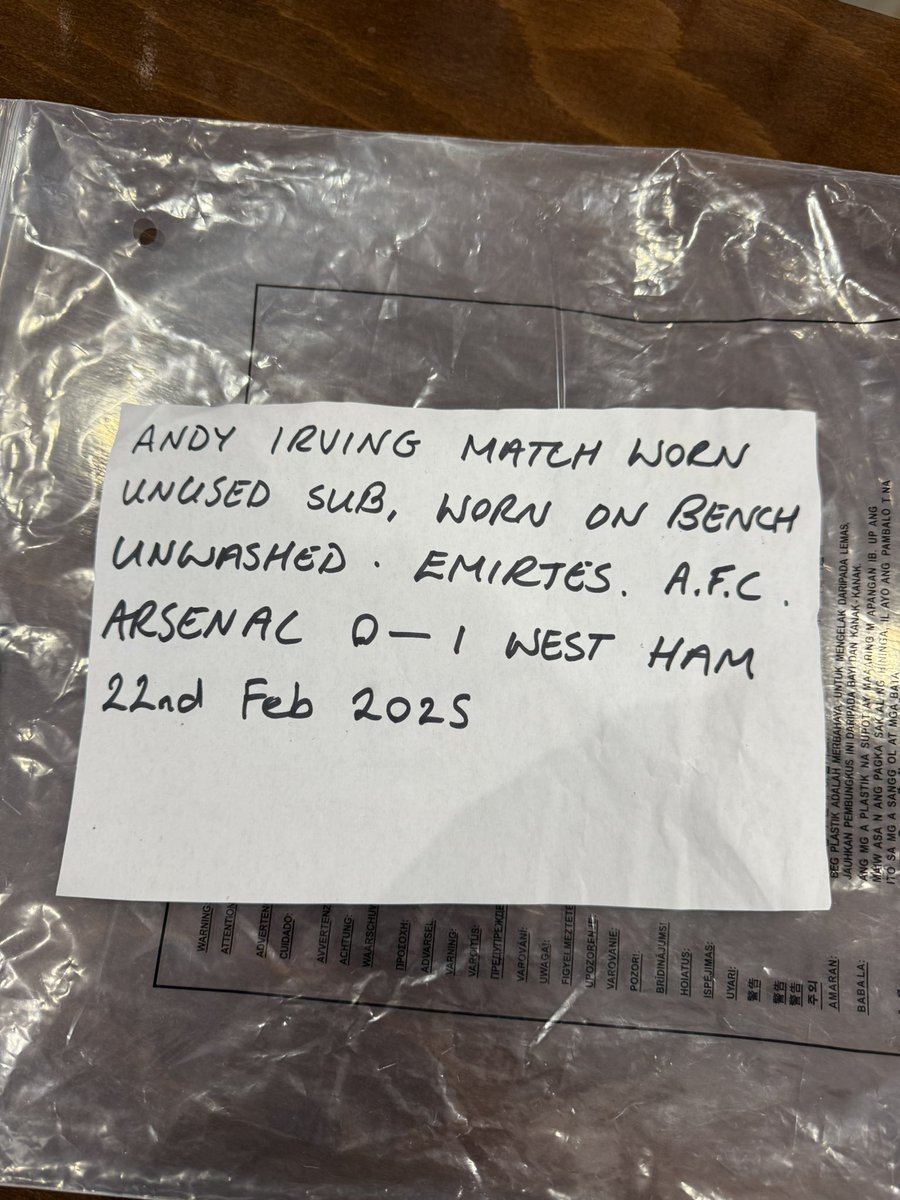 ANDY IRVING MATCH WORN
UNUSED SUB, WORN ON BENCH
UNWASHED. EMIRTES. A.F.C.
ARSENAL 0-1 WEST HAM
22nd Feb 2025
WARNING:
ATTENTION
ADVERTEN
CUIDADO:
AVERTENZ
ACHTUNG:
WAARSCHUW
ΠΡΟΣΟΧΗ:
ADVARSEL
VARNING:
VAROITUS:
ПРЕДУПРЕЖДЕ
VAROVÁNÍ:
UWAGA!:
FIGYELMEZTETÉ
UPOZORENJE
VAROVANIE
POZOR!
BRĪDINĀJUMS!
HOIATUS:
ISPĖJIMAS:
UYARI:
警告
警告
警告
주의
AMARAN:
BABALA:
BEG PLASTIK ADALAH MERBAHAYA. UNTUK MENGELAK DARIPADA LEMAS,
JAUHKAN PEMBUNGKUS INI DARIPADA BAYI DAN KANAK-KANAK.
ANG MG A PLASTIK NA SUPOT AY MAAARING M APANGAN IB. UP ANG
MAIW ASA N ANG PAGKA SAK AL NG HININGA, IL AYO ANG PAMBALO T NA
ITO SA MG A SANGG OL AT MGA BATA